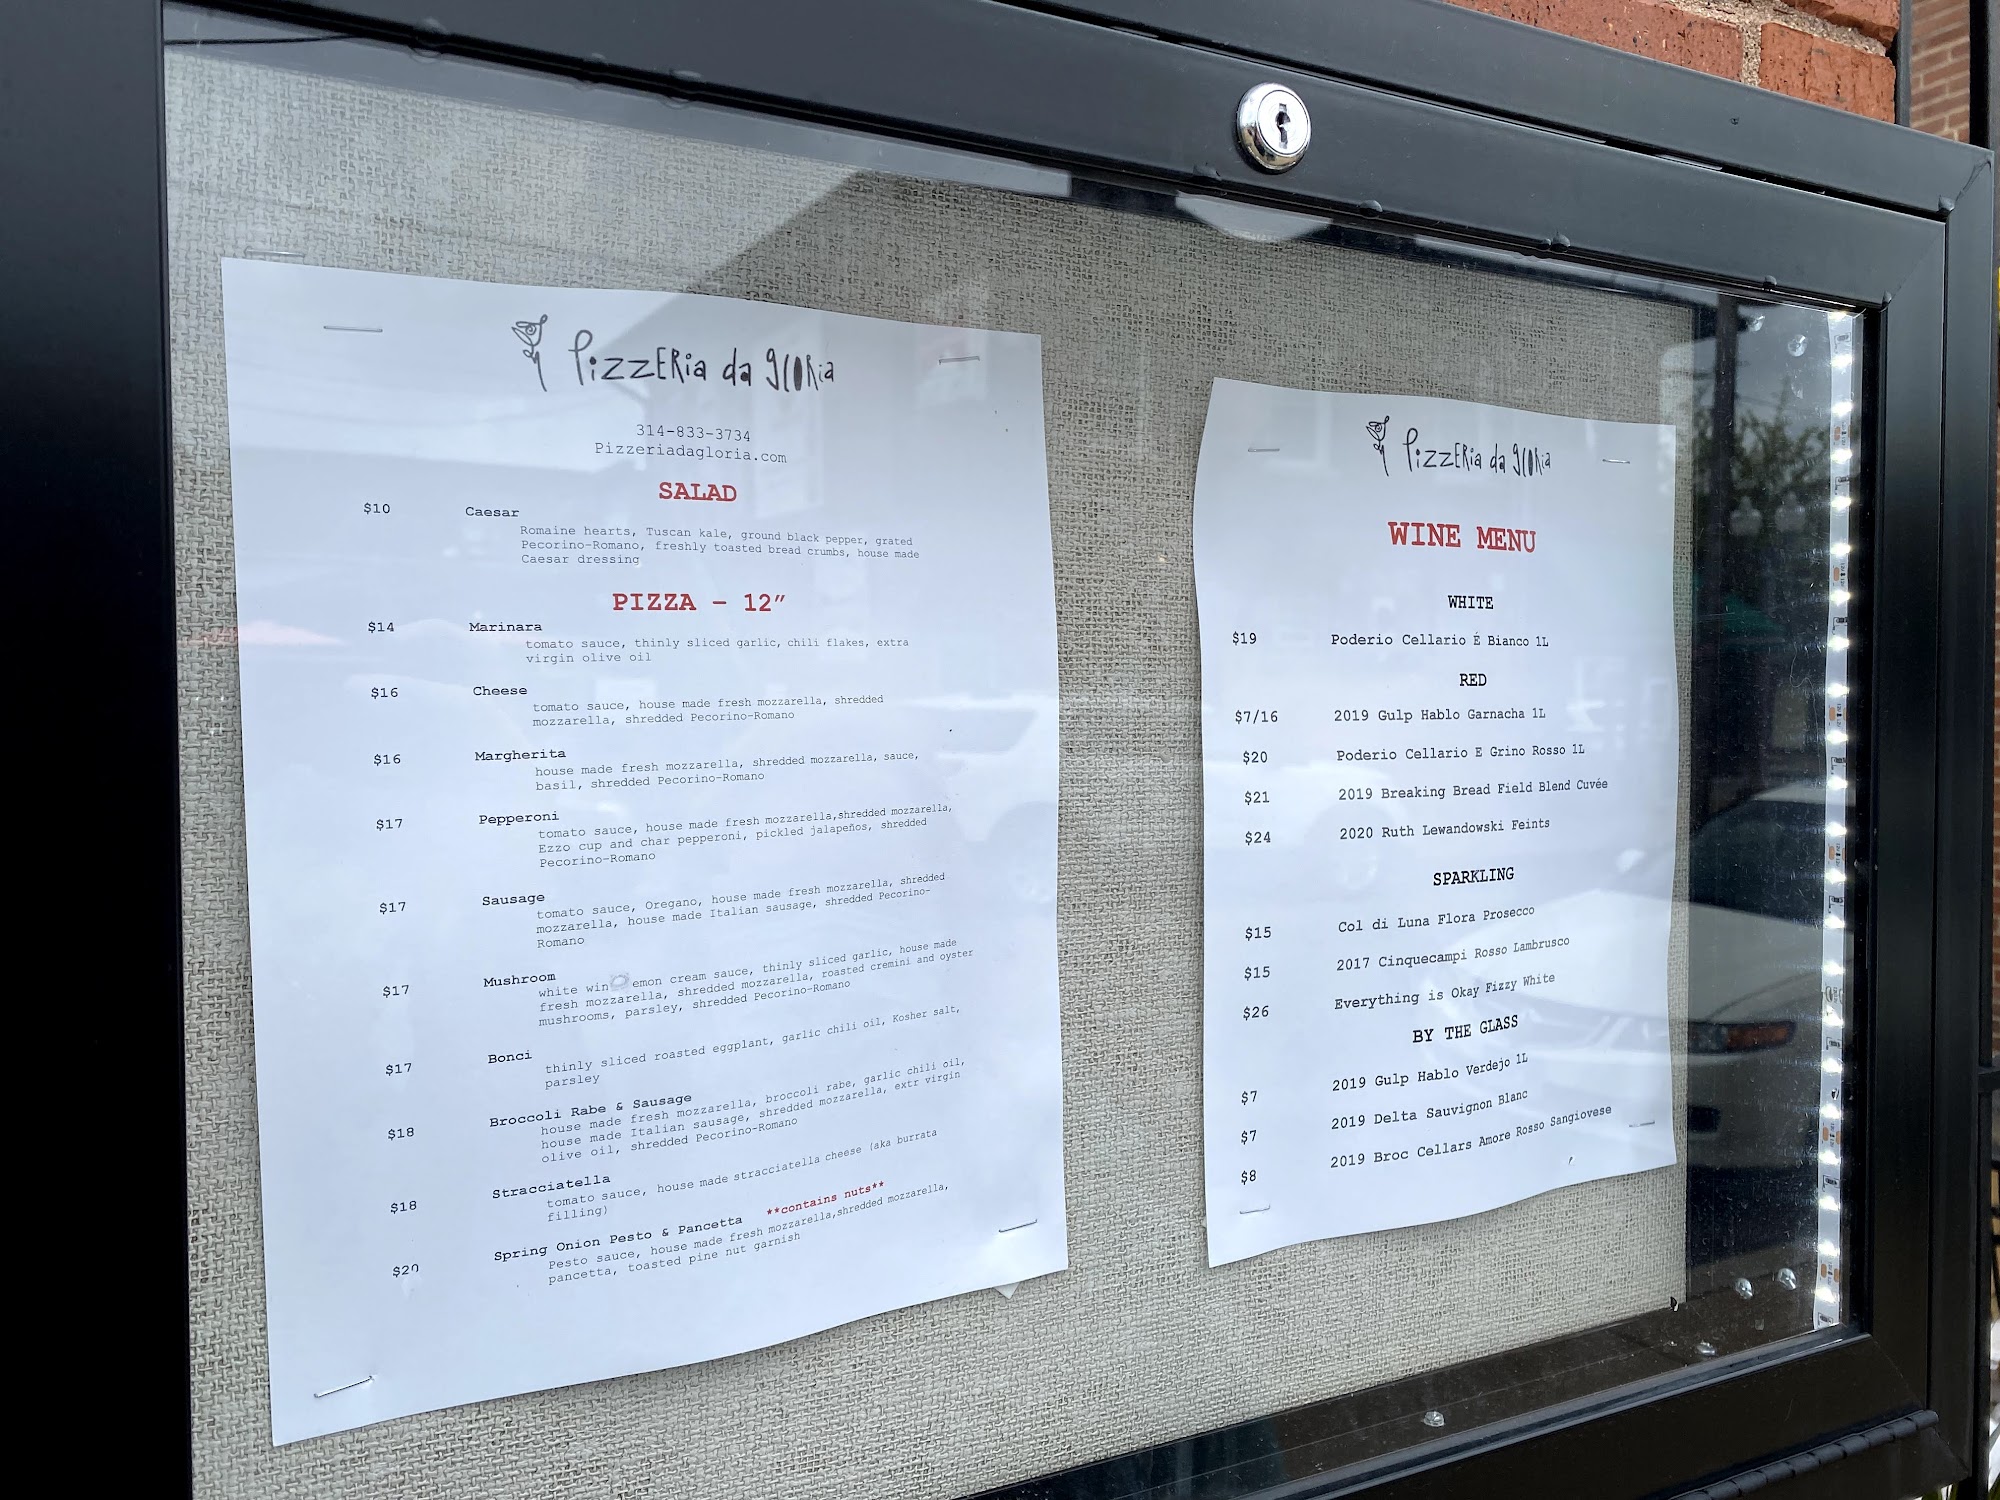 Pizzeria da gloria
314-833-3734
Pizzeriadagloria.com
SALAD
$10 Caesar
Romaine hearts, Tuscan kale, ground black pepper, grated
Pecorino-Romano, freshly toasted bread crumbs, house made
Caesar dressing
PIZZA - 12″
$14 Marinara
tomato sauce, thinly sliced garlic, chili flakes, extra
virgin olive oil
$16 Cheese
tomato sauce, house made fresh mozzarella, shredded
mozzarella, shredded Pecorino-Romano
$16 Margherita
house made fresh mozzarella, shredded mozzarella, sauce,
basil, shredded Pecorino-Romano
$17 Pepperoni
tomato sauce, house made fresh mozzarella,shredded mozzarella,
Ezzo cup and char pepperoni, pickled jalapeños, shredded
Pecorino-Romano
$17 Sausage
tomato sauce, Oregano, house made fresh mozzarella, shredded
mozzarella, house made Italian sausage, shredded Pecorino-
Romano
$17 Mushroom
white win emon cream sauce, thinly sliced garlic, house made
fresh mozzarella, shredded mozzarella, roasted cremini and oyster
mushrooms, parsley, shredded Pecorino-Romano
$17 Bonci
thinly sliced roasted eggplant, garlic chili oil, Kosher salt,
parsley
$18 Broccoli Rabe & Sausage
house made fresh mozzarella, broccoli rabe, garlic chili oil,
house made Italian sausage, shredded mozzarella, extr virgin
olive oil, shredded Pecorino-Romano
$18 Stracciatella
tomato sauce, house made stracciatella cheese (aka burrata
filling)
$20 Spring Onion Pesto & Pancetta **contains nuts**
Pesto sauce, house made fresh mozzarella,shredded mozzarella,
pancetta, toasted pine nut garnish
Pizzeria da gloria
WINE MENU
WHITE
$19 Poderio Cellario É Bianco 1L
RED
$7/16 2019 Gulp Hablo Garnacha 1L
$20 Poderio Cellario E Grino Rosso 1L
$21 2019 Breaking Bread Field Blend Cuvée
$24 2020 Ruth Lewandowski Feints
SPARKLING
$15 Col di Luna Flora Prosecco
$15 2017 Cinquecampi Rosso Lambrusco
$26 Everything is Okay Fizzy White
BY THE GLASS
$7 2019 Gulp Hablo Verdejo 1L
$7 2019 Delta Sauvignon Blanc
$8 2019 Broc Cellars Amore Rosso Sangiovese